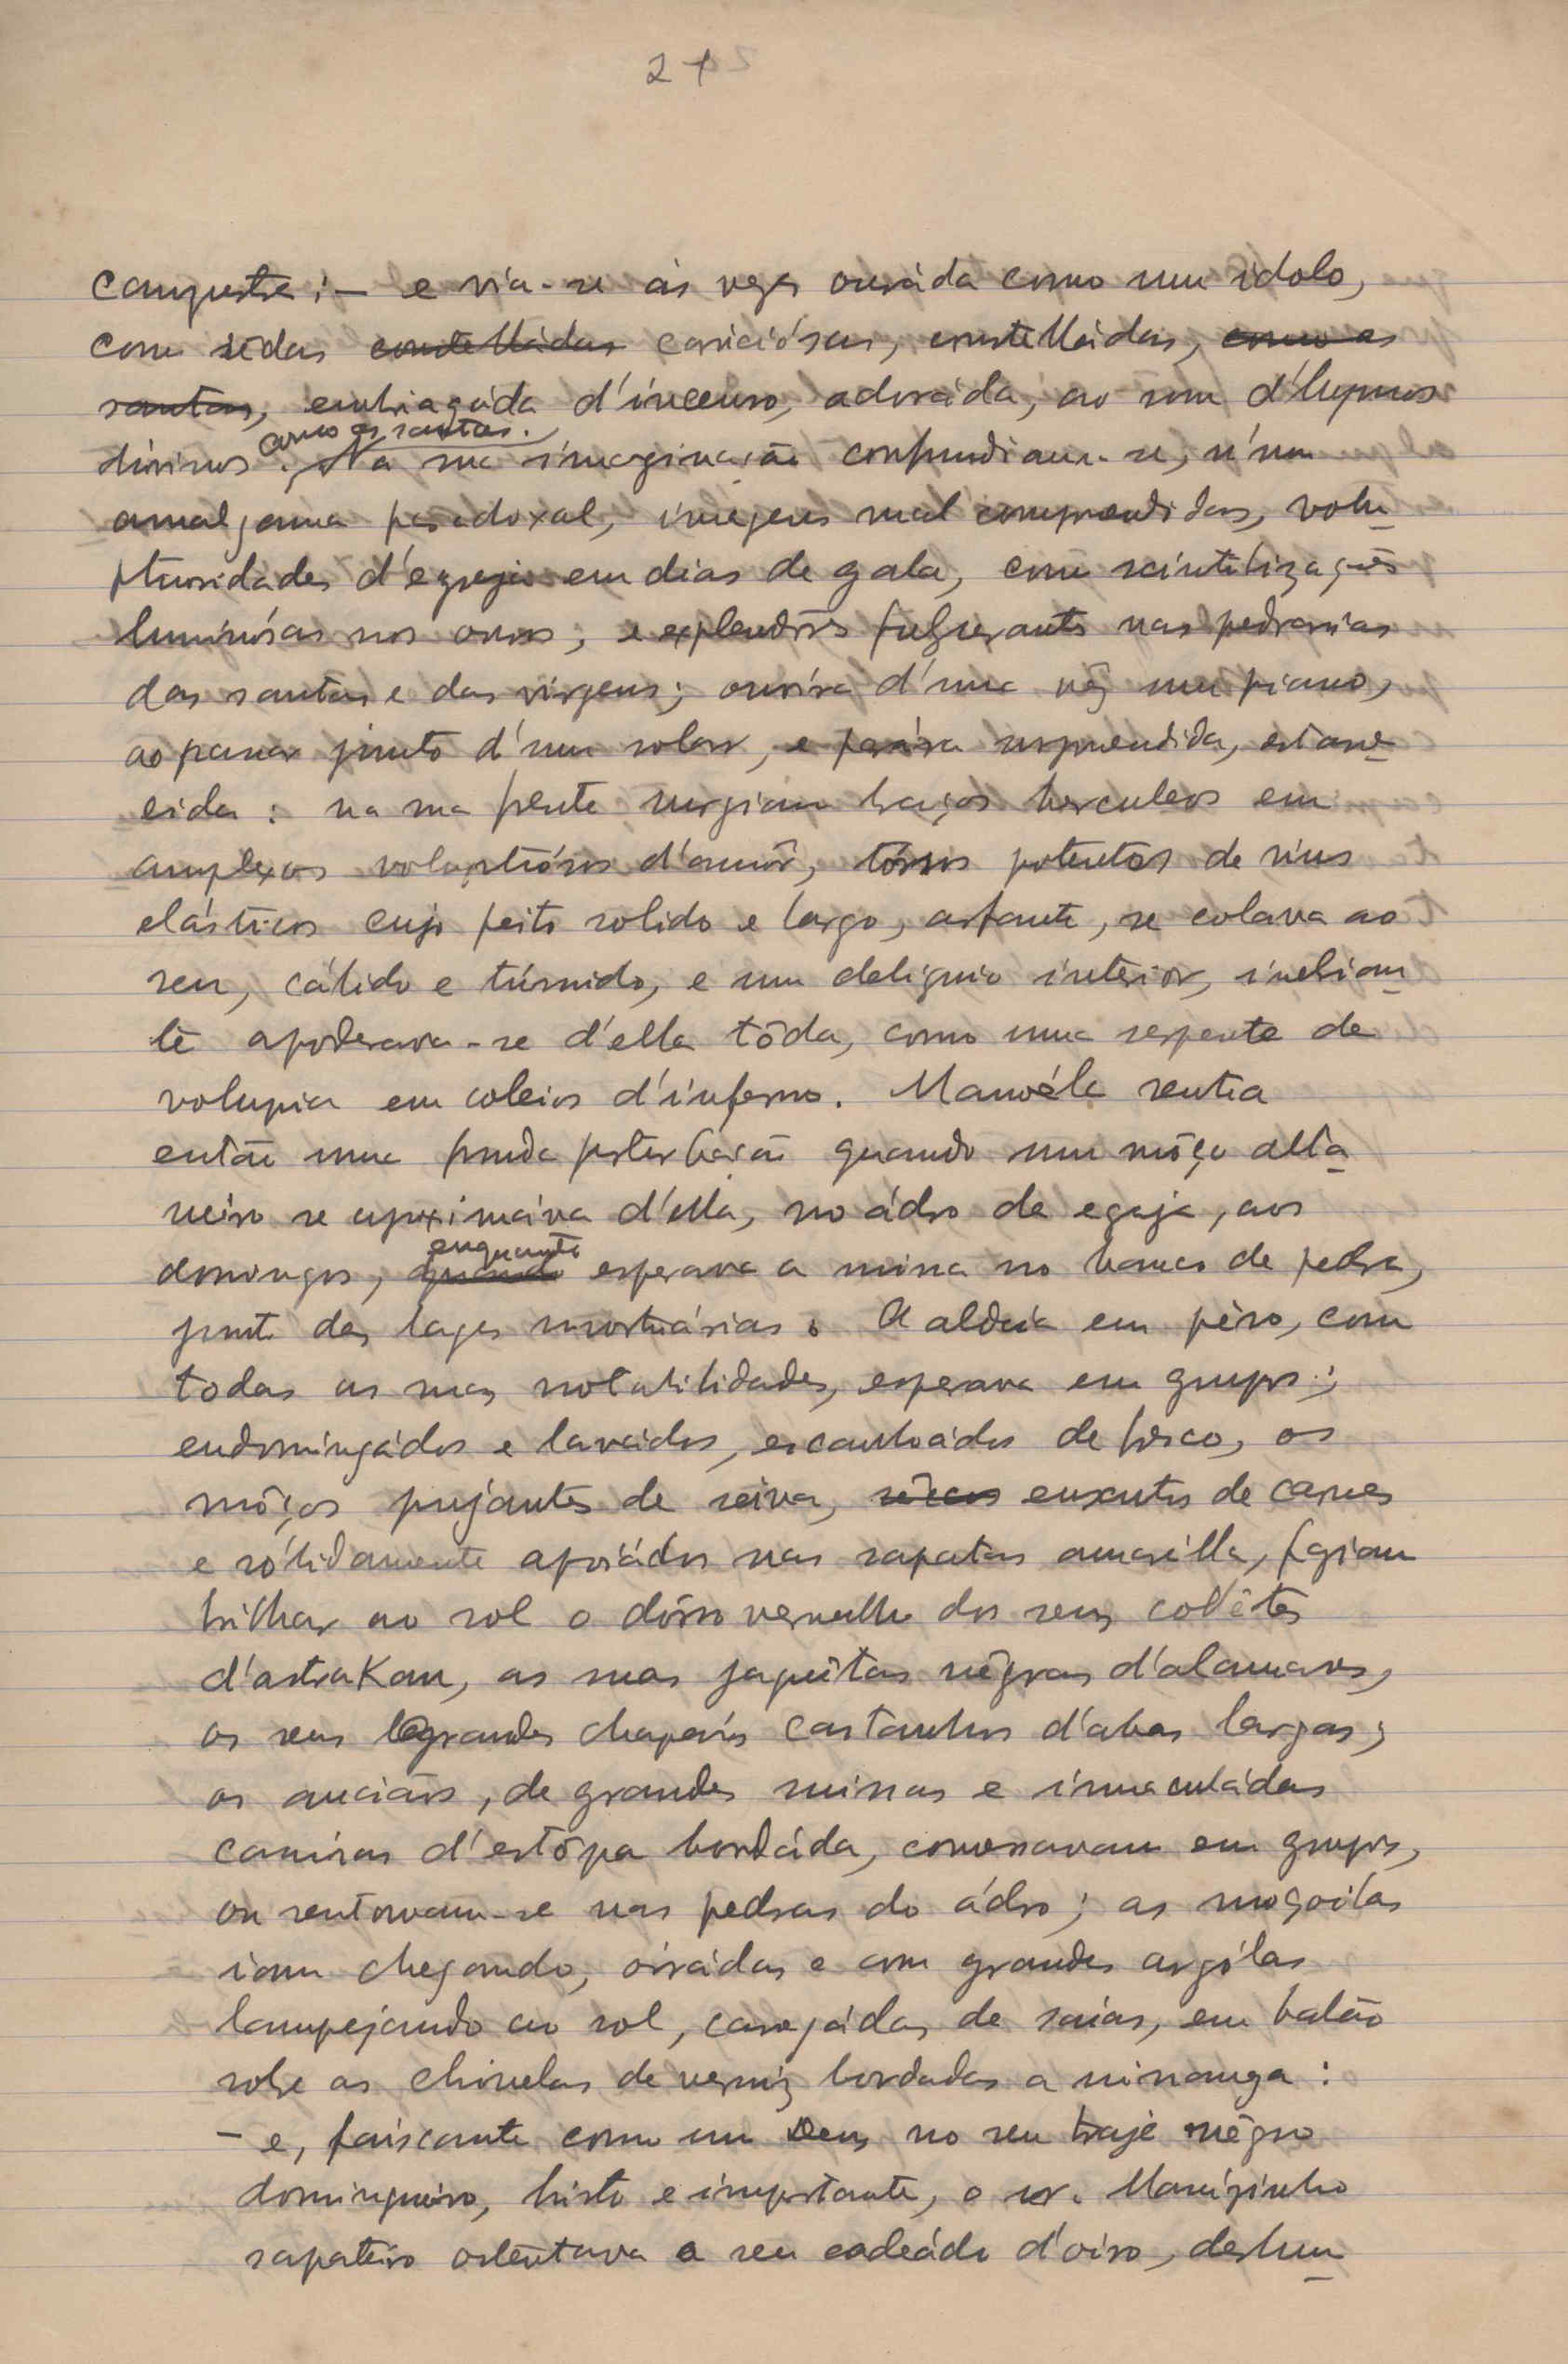 2
campestre; — e via-se ás vezes ouráda como um idolo,
com sêdas constelládas cariciósas, constelládas, como as
santas, embriagáda d'incenso, adoráda, ao som d'hymnos
divinos como as santas. Na sua imaginação confundiam-se, n'um
amalgama paradoxal, imagens mal comprendidas, volu-
ptuosidades d'egreja em dias de gala, com scintilizações
luminósas nos ouros, e explendôres fulgurantes nas pedrarias
das santas e das virgens; ouvíra d'uma vêz um piano,
ao passar junto d'um solar, e parára surprendida, estare-
cida: na sua frente surgiam braços herculeos em
amplexos voluptuósos d'amôr, tórsos potentes de rins
elásticos cujo peito solido e largo, arfante, se colava ao
seu, cálido e túrmido, e um deliquio interior, inebian-
te apoderava-se d'ella tôda, como uma serpente de
volupia em coleios d'inferno. Manoéla sentia
então uma funda perturbação quando um môço alta-
neiro se aproximáva d'ella, no ádro da egreja, aos
domingos, quando enquanto esperava a missa no banco de pedra,
junto das lages mortuárias. A aldeia em pêso, com
todas as suas notabilidades, esperava em grupos;
endomingádos e lavados, escanhoádos de fresco, os
môços pujantes de seiva, sêcos enxutos de carnes
e sólidamente apoiádos nas sapatas amarella, faziam
brilhar ao sol o dôrso vermelho dos seus colêtes
d'astraKan, as suas jaquêtas nêgras d'alamares,
os seus grandes chapéus castanhos d'abas largas;
os anciãos, de grandes suissas e immaculádas
camisas d'estôpa bordáda, conversavam em grupos,
ou sentavam-se nas pedras do ádro; as moçoilas
iam chegando, oirádas e com grandes argólas
lampejando ao sol, carregádas de saias, em balão
sobre as chinelas de verniz bordadas a missanga:
– e, faiscante como um Deus no seu traje nêgro
domingueiro, hirto e importante, o sr. Luizinho
sapateiro ostentava o seu cadeádo d'oiro, deslum-